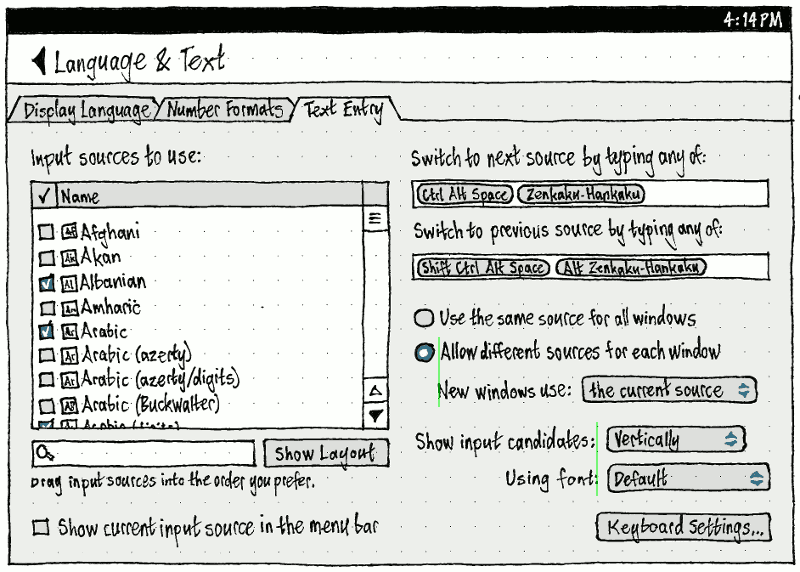 4:14 PM
Language & Text
Display Language
Number Formats
Text Entry
Input sources to use:
✓ Name
Af Afghani
Ak Akan
Al Albanian
Am Amharic
Ar Arabic
Ar Arabic (azerty)
Ar Arabic (azerty/digits)
AB Arabic (Buckwalter)
Arabic (digits)
Show Layout
Drag input sources into the order you prefer.
Show current input source in the menu bar
Switch to next source by typing any of:
Ctrl Alt Space Zenkaku-Hankaku
Switch to previous source by typing any of:
Shift Ctrl Alt Space Alt Zenkaku-Hankaku
Use the same source for all windows
Allow different sources for each window
New windows use: the current source
Show input candidates: Vertically
Using font: Default
Keyboard Settings...